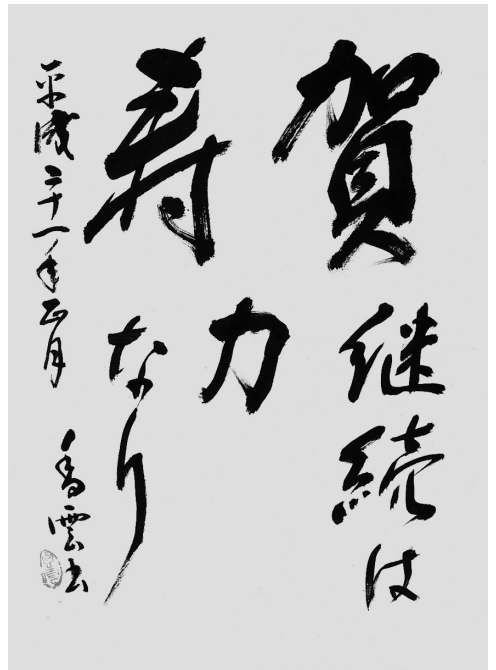 賀
寿
継続は
力
なり
平成二十一年正月
香雲書